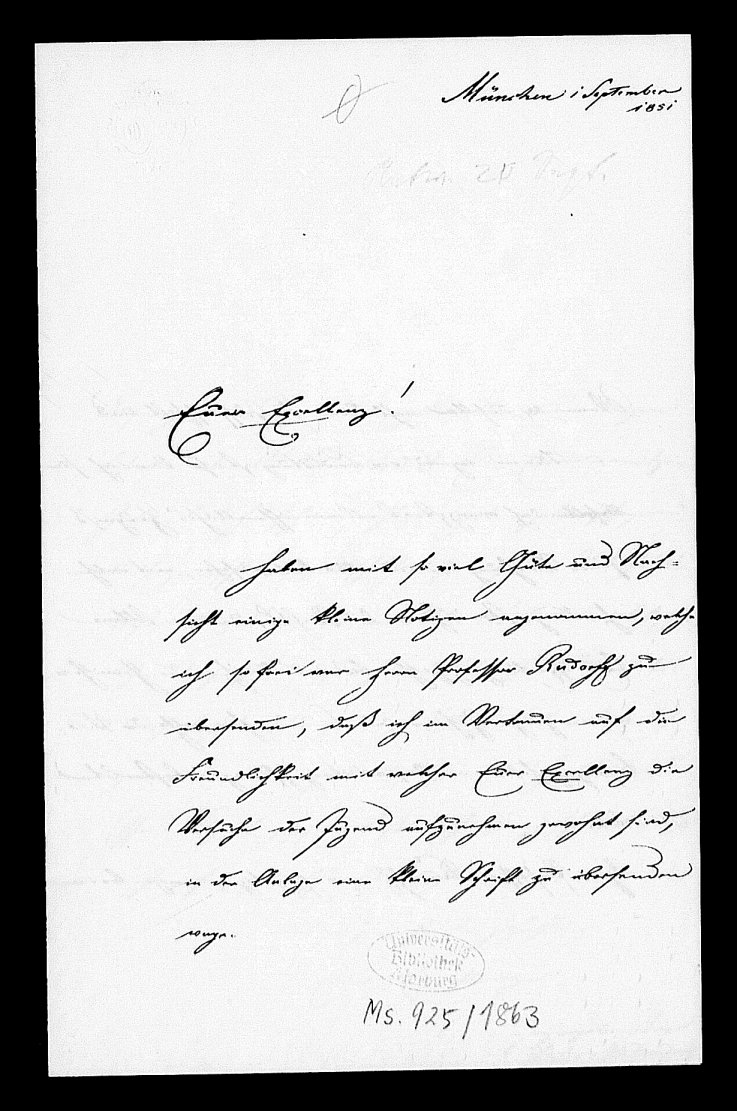 München 1 September
1851
Euer Excellenz!
haben mit so viel Güte und Nach-
sicht einige kleine Notizen angenommen, welche
ich so frei war Herrn Professor Rudorff zu
übersenden, daß ich im Vertrauen auf die
Freundlichkeit mit welcher Euer Excellenz die
Versuche der Jugend aufzunehmen gewohnt sind,
in der Anlage eine kleine Schrift zu übersenden
wage.
Universitäts-
Bibliothek
Marburg
Ms. 925/1863